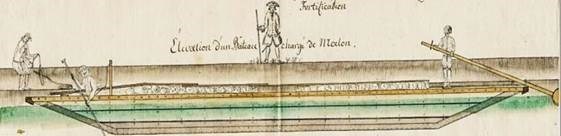 Fortification
Élevation d'un Bateau chargé de Moelon.